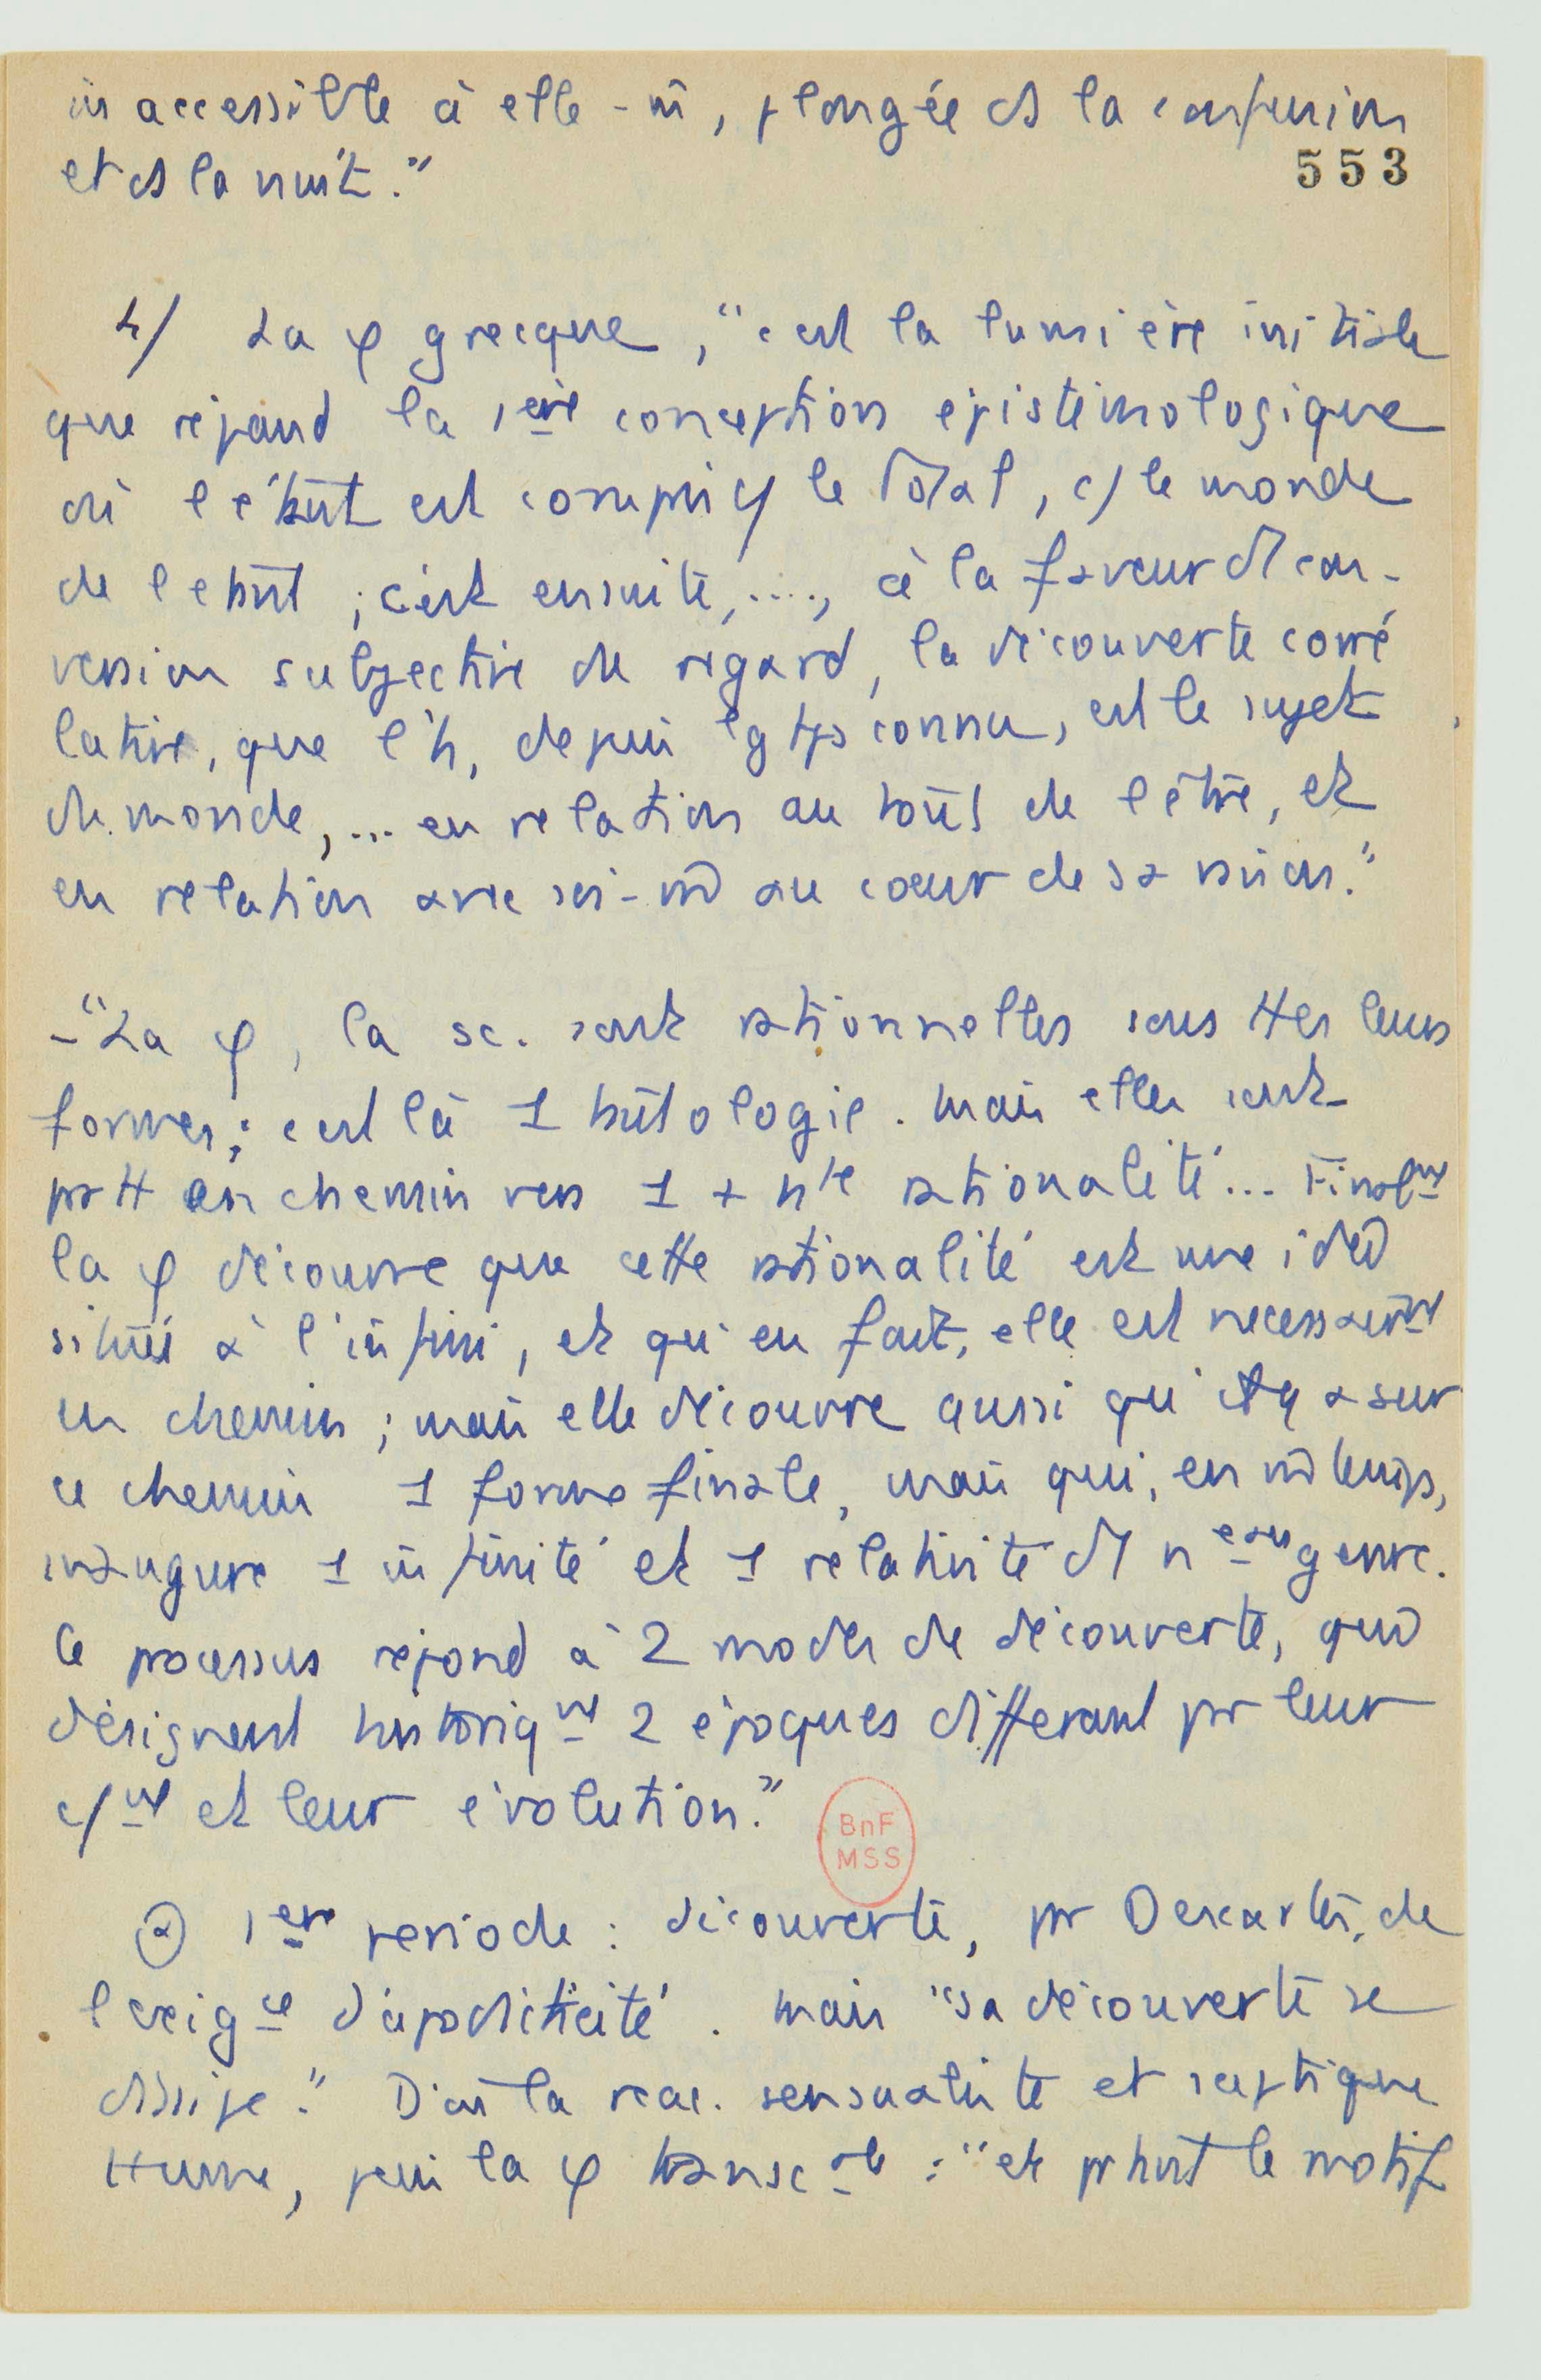 inaccessible à elle-m̂, plongée ds la confusion
et ds la nuit."
553
4/ La φ grecque, "c'est la lumière initiale
que répand la 1ère conception épistémologique
où l'étant est compris c/ le Total, c/ le monde
de l'étant ; c'est ensuite, ...., à la faveur d'1 con-
version subjective du regard, la découverte corré
lative, que l'h, depuis lg tps connu, est le sujet
du monde, ... en relation au tout de l'être, et
en relation avec soi-m̂ au coeur de sa raison."
- "La φ, la sc. sont rationnelles sous ttes leurs
formes ; c'est là 1 tautologie. Mais elles sont
prtt en chemin vers 1 + hte rationalité... Finalmt
la φ découvre que cette rationalité est une idée
située à l'infini, et qu'en fait, elle est nécessairmt
en chemin ; mais elle découvre aussi qu'il y a sur
ce chemin 1 forme finale, mais qui, en m̂ temps,
inaugure 1 infinité et 1 relativité d'1 neau genre.
Ce processus répond à 2 modes de découverte, qui
désignent historiqmt 2 époques différant pr leur
c/mt et leur évolution."
BnF
MSS
(a) 1ère période : découverte, pr Descartes, de
l'exigce d'apodicticité. Mais "sa découverte se
dissipe." D'où la réac. sensualiste et sceptique
Hume, puis la φ transcale : "et prtant le motif